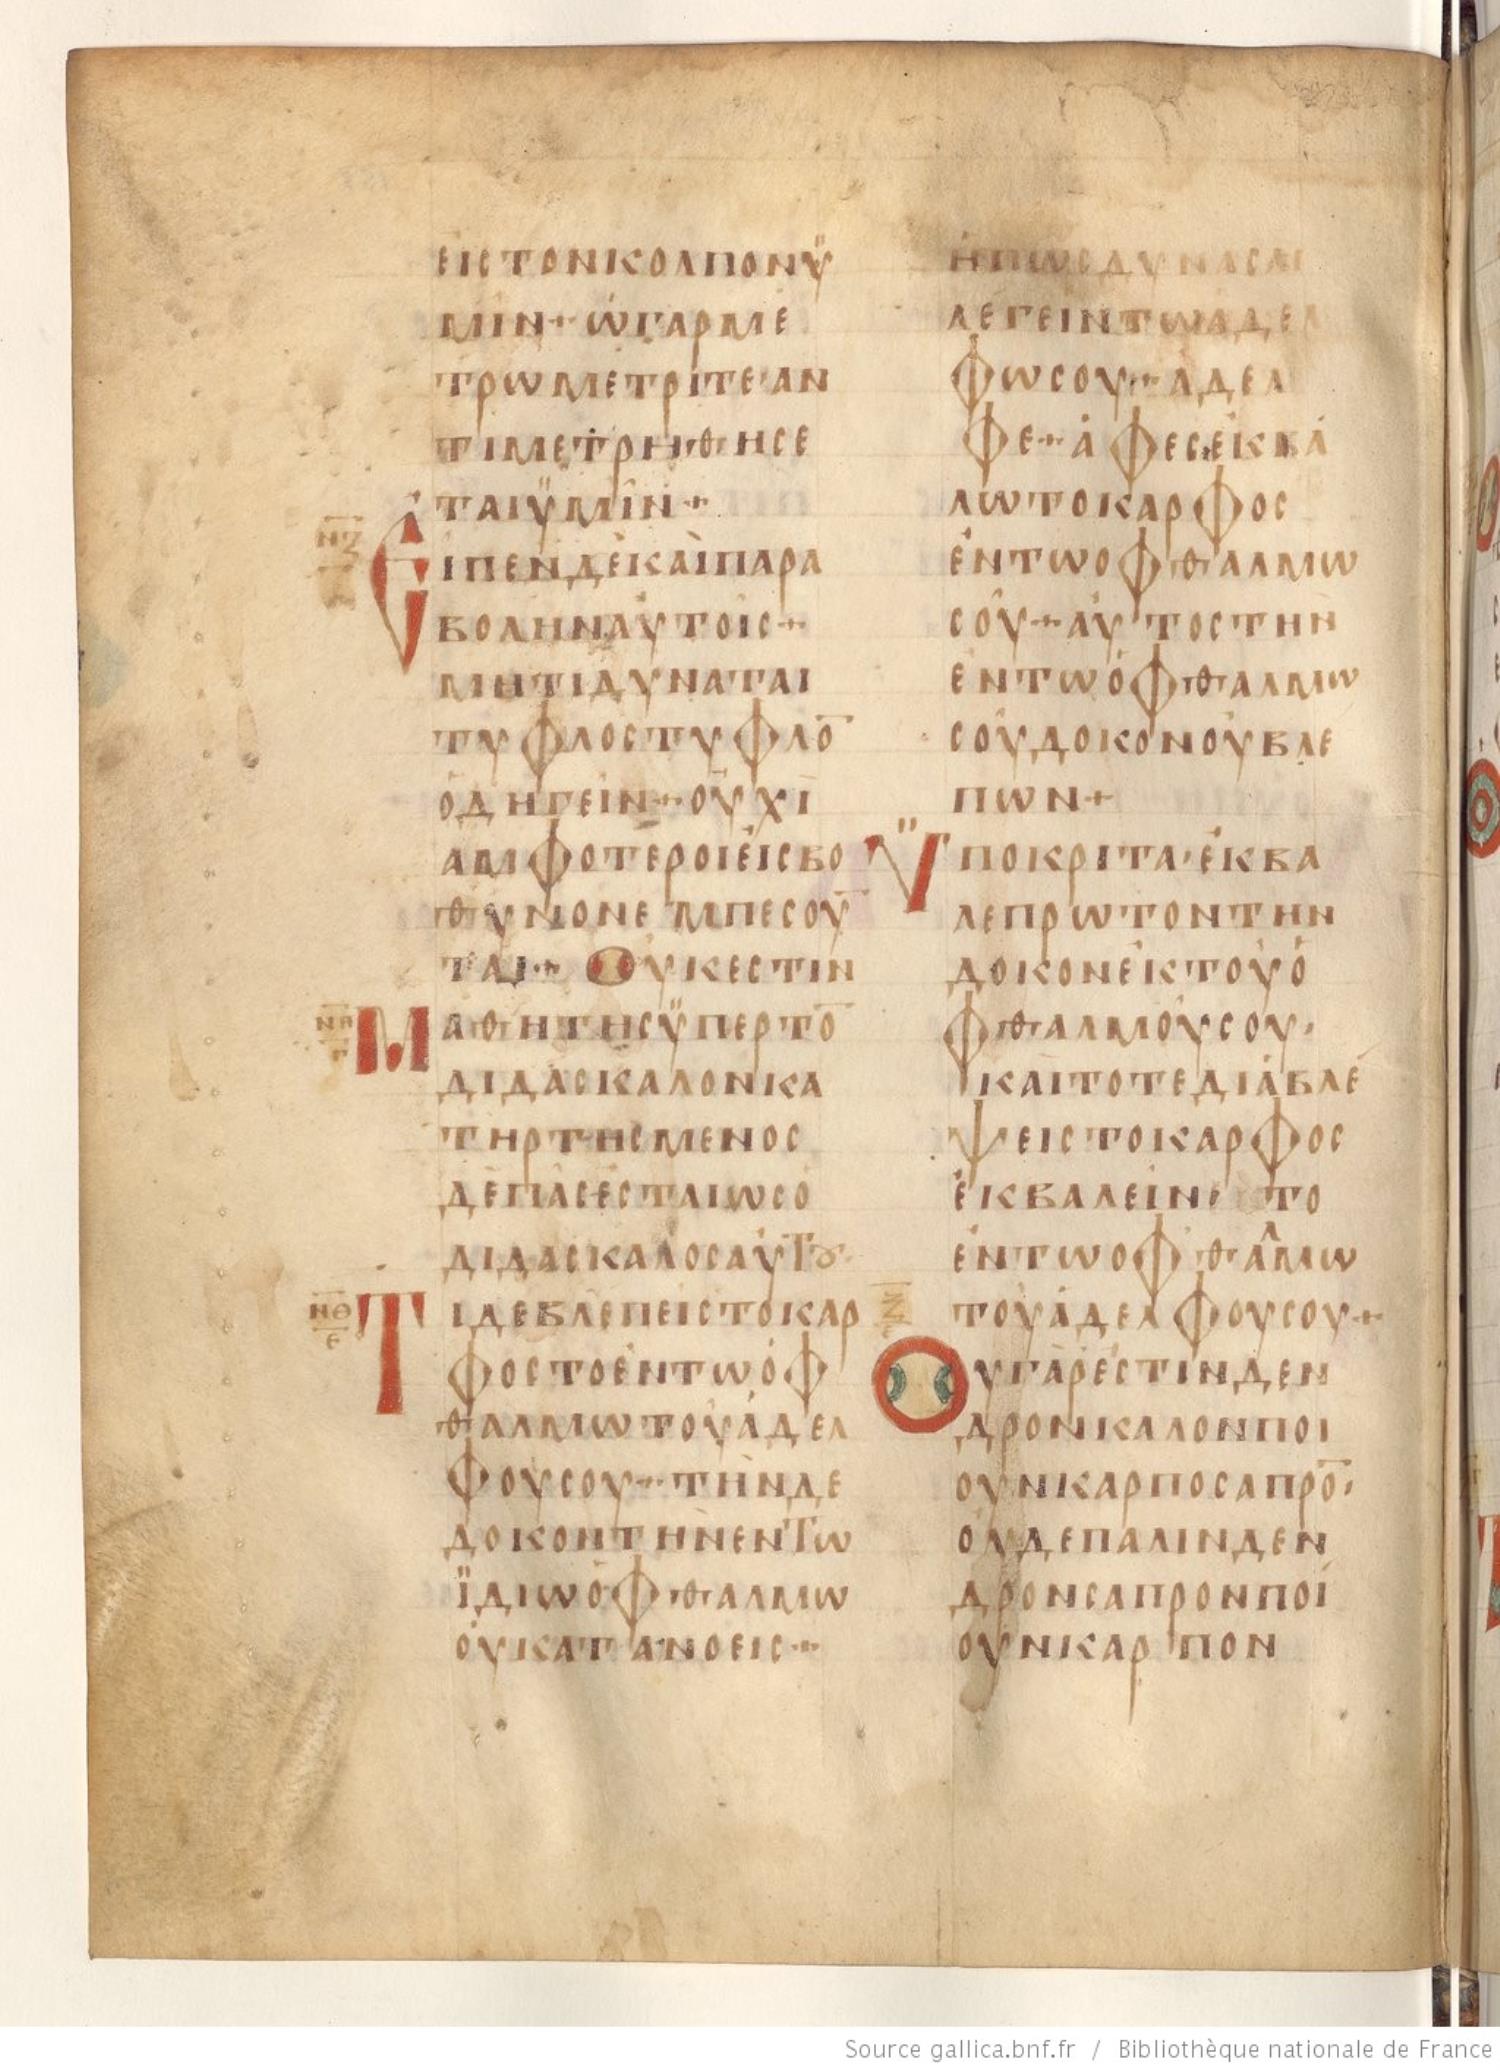 ΕΙСΤΟΝΚΟΛΠΟΝΫ
ΜΙΝ+ ὩΓΑΡΜΕ
ΤΡΩΜΕΤΡΙΤΕ·ΑΝ
ΤΙΜΕΤΡΗΘΗСΕ
ΤΑΙΫΜΙΝ+
ΝΖ
ΕΙΠΕΝΔΕΚΑΙΠΑΡΑ
ΒΟΛΗΝΑΥΤΟΙС+
ΜΗΤΙΔΥΝΑΤΑΙ
ΤΥΦΛΟСΤΥΦΛΟ̅
ὉΔΗΓΕΙΝ+ΟΥΧΙ
ΑΜΦΟΤΕΡΟΙΕΙСΒΟ
ΘΥΝΟΝΕΜΠΕСΟΥ
ΤΑΙ+ ΟΥΚΕСΤΙΝ
ΝΗ
Γ
ΜΑΘΗΤΗСΫΠΕΡΤΟ̅
ΔΙΔΑСΚΑΛΟΝΚΑ
ΤΗΡΤΗСΜΕΝΟС
ΔΕΠΑСΕСΤΑΙΩСὉ
ΔΙΔΑСΚΑΛΟСΑΥΤȢ·
ΝΘ
Ε
ΤΙΔΕΒΛΕΠΕΙСΤΟΚΑΡ
ΦΟСΤΟΕΝΤΩΟΦ
ΘΑΛΜΩΤΟΥΑΔΕΛ
ΦΟΥСΟΥ+ΤΗΝΔΕ
ΔΟΚΟΝΤΗΝΕΝΤΩ
ΪΔΙΩΟΦΘΑΛΜΩ
ΟΥΚΑΤΑΝΟΕΙС+
ΗΠΩСΔΥΝΑСΑΙ
ΛΕΓΕΙΝΤΩΑΔΕΛ
ΦΩСΟΥ+ΑΔΕΛ
ΦΕ+ΑΦΕСΕΚΒΑ
ΛΩΤΟΚΑΡΦΟС
ΕΝΤΩΟΦΘΑΛΜΩ
СΟΥ+ΑΥΤΟСΤΗΝ
ΕΝΤΩΟΦΘΑΛΜΩ
СΟΥΔΟΚΟΝΟΥΒΛΕ
ΠΩΝ+
ΫΠΟΚΡΙΤΑ·ΕΚΒΑ
ΛΕΠΡΩΤΟΝΤΗΝ
ΔΟΚΟΝΕΚΤΟΥΟ
ΦΘΑΛΜΟΥСΟΥ·
ΚΑΙΤΟΤΕΔΙΑΒΛΕ
ΨΕΙСΤΟΚΑΡΦΟС
ΕΚΒΑΛΕΙΝ· ΤΟ
ΕΝΤΩΟΦΘΑΛΜΩ
ΤΟΥΑΔΕΛΦΟΥСΟΥ+
ΟΥΓΑΡΕСΤΙΝΔΕΝ
ΔΡΟΝΚΑΛΟΝΠΟΙ
ΟΥΝΚΑΡΠΟСΑΠΡΟ̅·
ΟΥΔΕΠΑΛΙΝΔΕΝ
ΔΡΟΝСΑΠΡΟΝΠΟΙ
ΟΥΝΚΑΡΠΟΝ
Source gallica.bnf.fr / Bibliothèque nationale de France